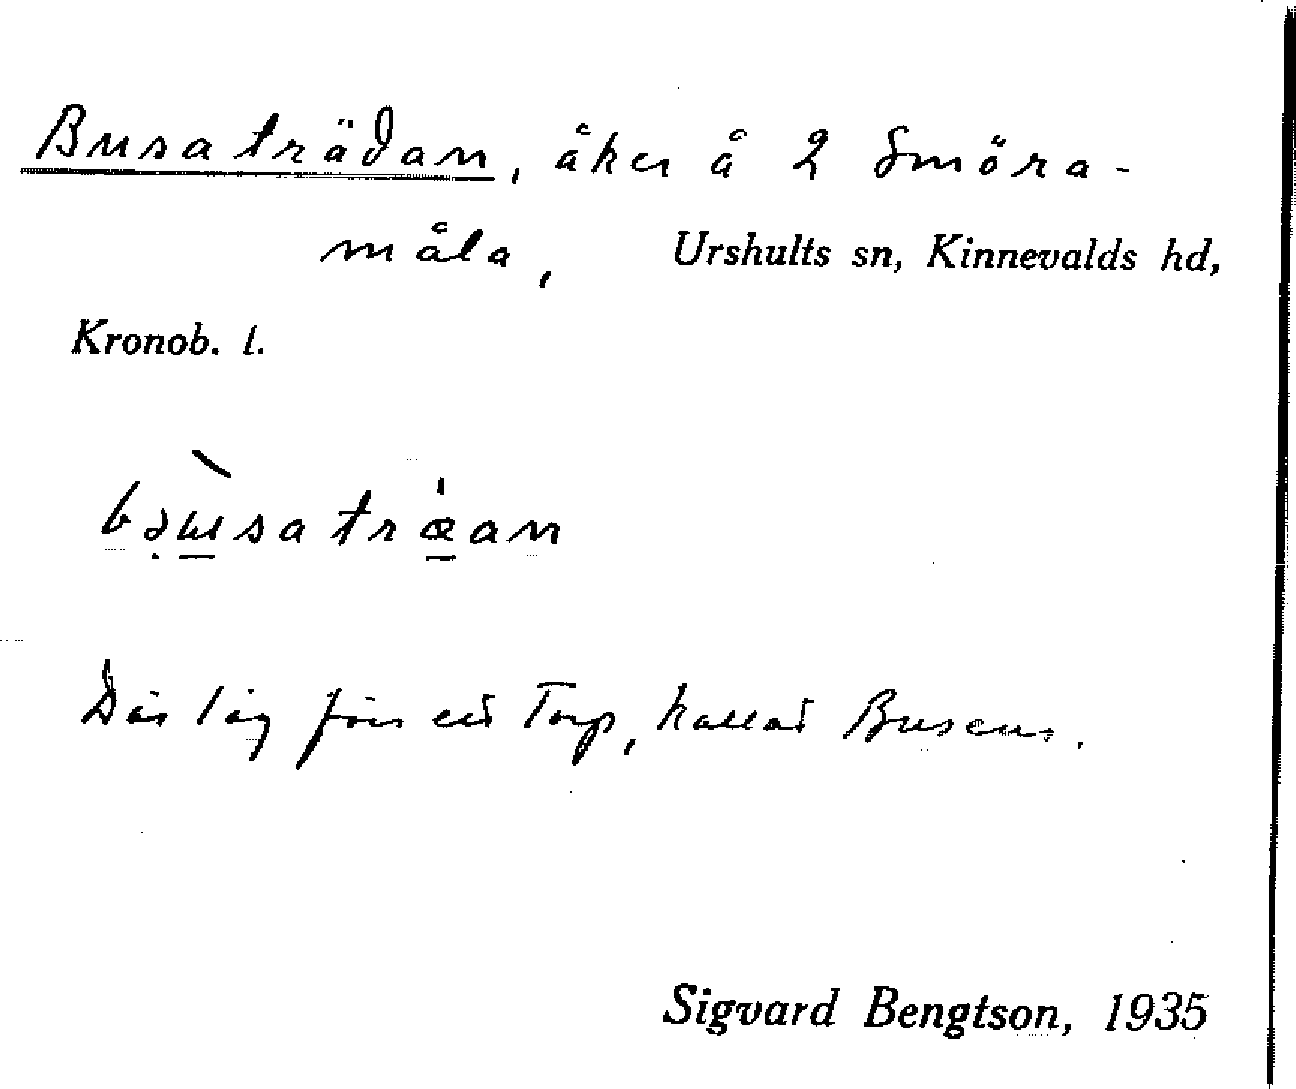 Busaträdan, åker å 2 Smöra-
måla, Urshults sn, Kinnevalds hd,
Kronob. l.
bə̣ɯ̲̀satræ̲̍an
Där låg förr ett Torp, kallat Busens.
Sigvard Bengtson, 1935